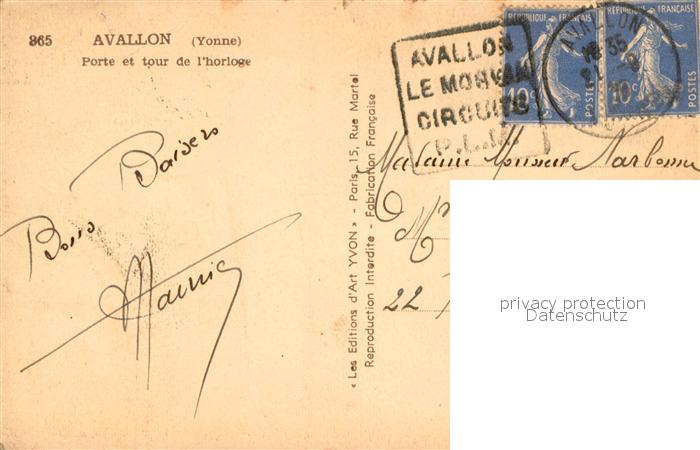 865 AVALLON (Yonne)
Porte et tour de l'horloge
Bons Baisers
« Les Editions d'Art YVON » - Paris, 15, Rue Martel
Reproduction Interdite - Fabrication Française
AVALLON
LE MORVAN
CIRCUITS
P.L.M.
REPUBLIQUE FRANÇAISE
10c
POSTES
REPUBLIQUE FRANÇAISE
10c
POSTES
AVALLON
Madame Monsieur Narbonne
22
privacy protection
Datenschutz